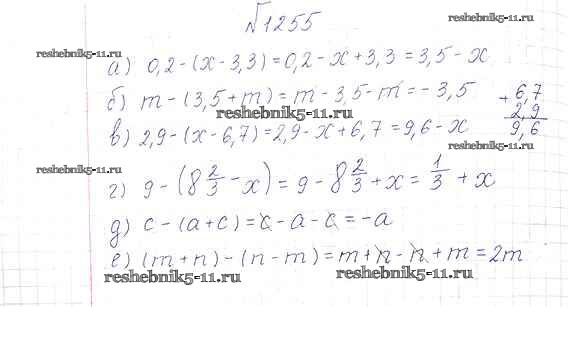 №1255
reshebnik5-11.ru
reshebnik5-11.ru
а) 0,2 - (x - 3,3) = 0,2 - x + 3,3 = 3,5 - x
б) m - (3,5 + m) = m - 3,5 - m = - 3,5
reshebnik5-11.ru
+ 6,7
2,9
9,6
в) 2,9 - (x - 6,7) = 2,9 - x + 6,7 = 9,6 - x
reshebnik5-11.ru
reshebnik5-11.ru
г) 9 - (8 2/3 - x) = 9 - 8 2/3 + x = 1/3 + x
д) c - (a + c) = c - a - c = -a
е) (m + n) - (n - m) = m + n - n + m = 2m
reshebnik5-11.ru
reshebnik5-11.ru